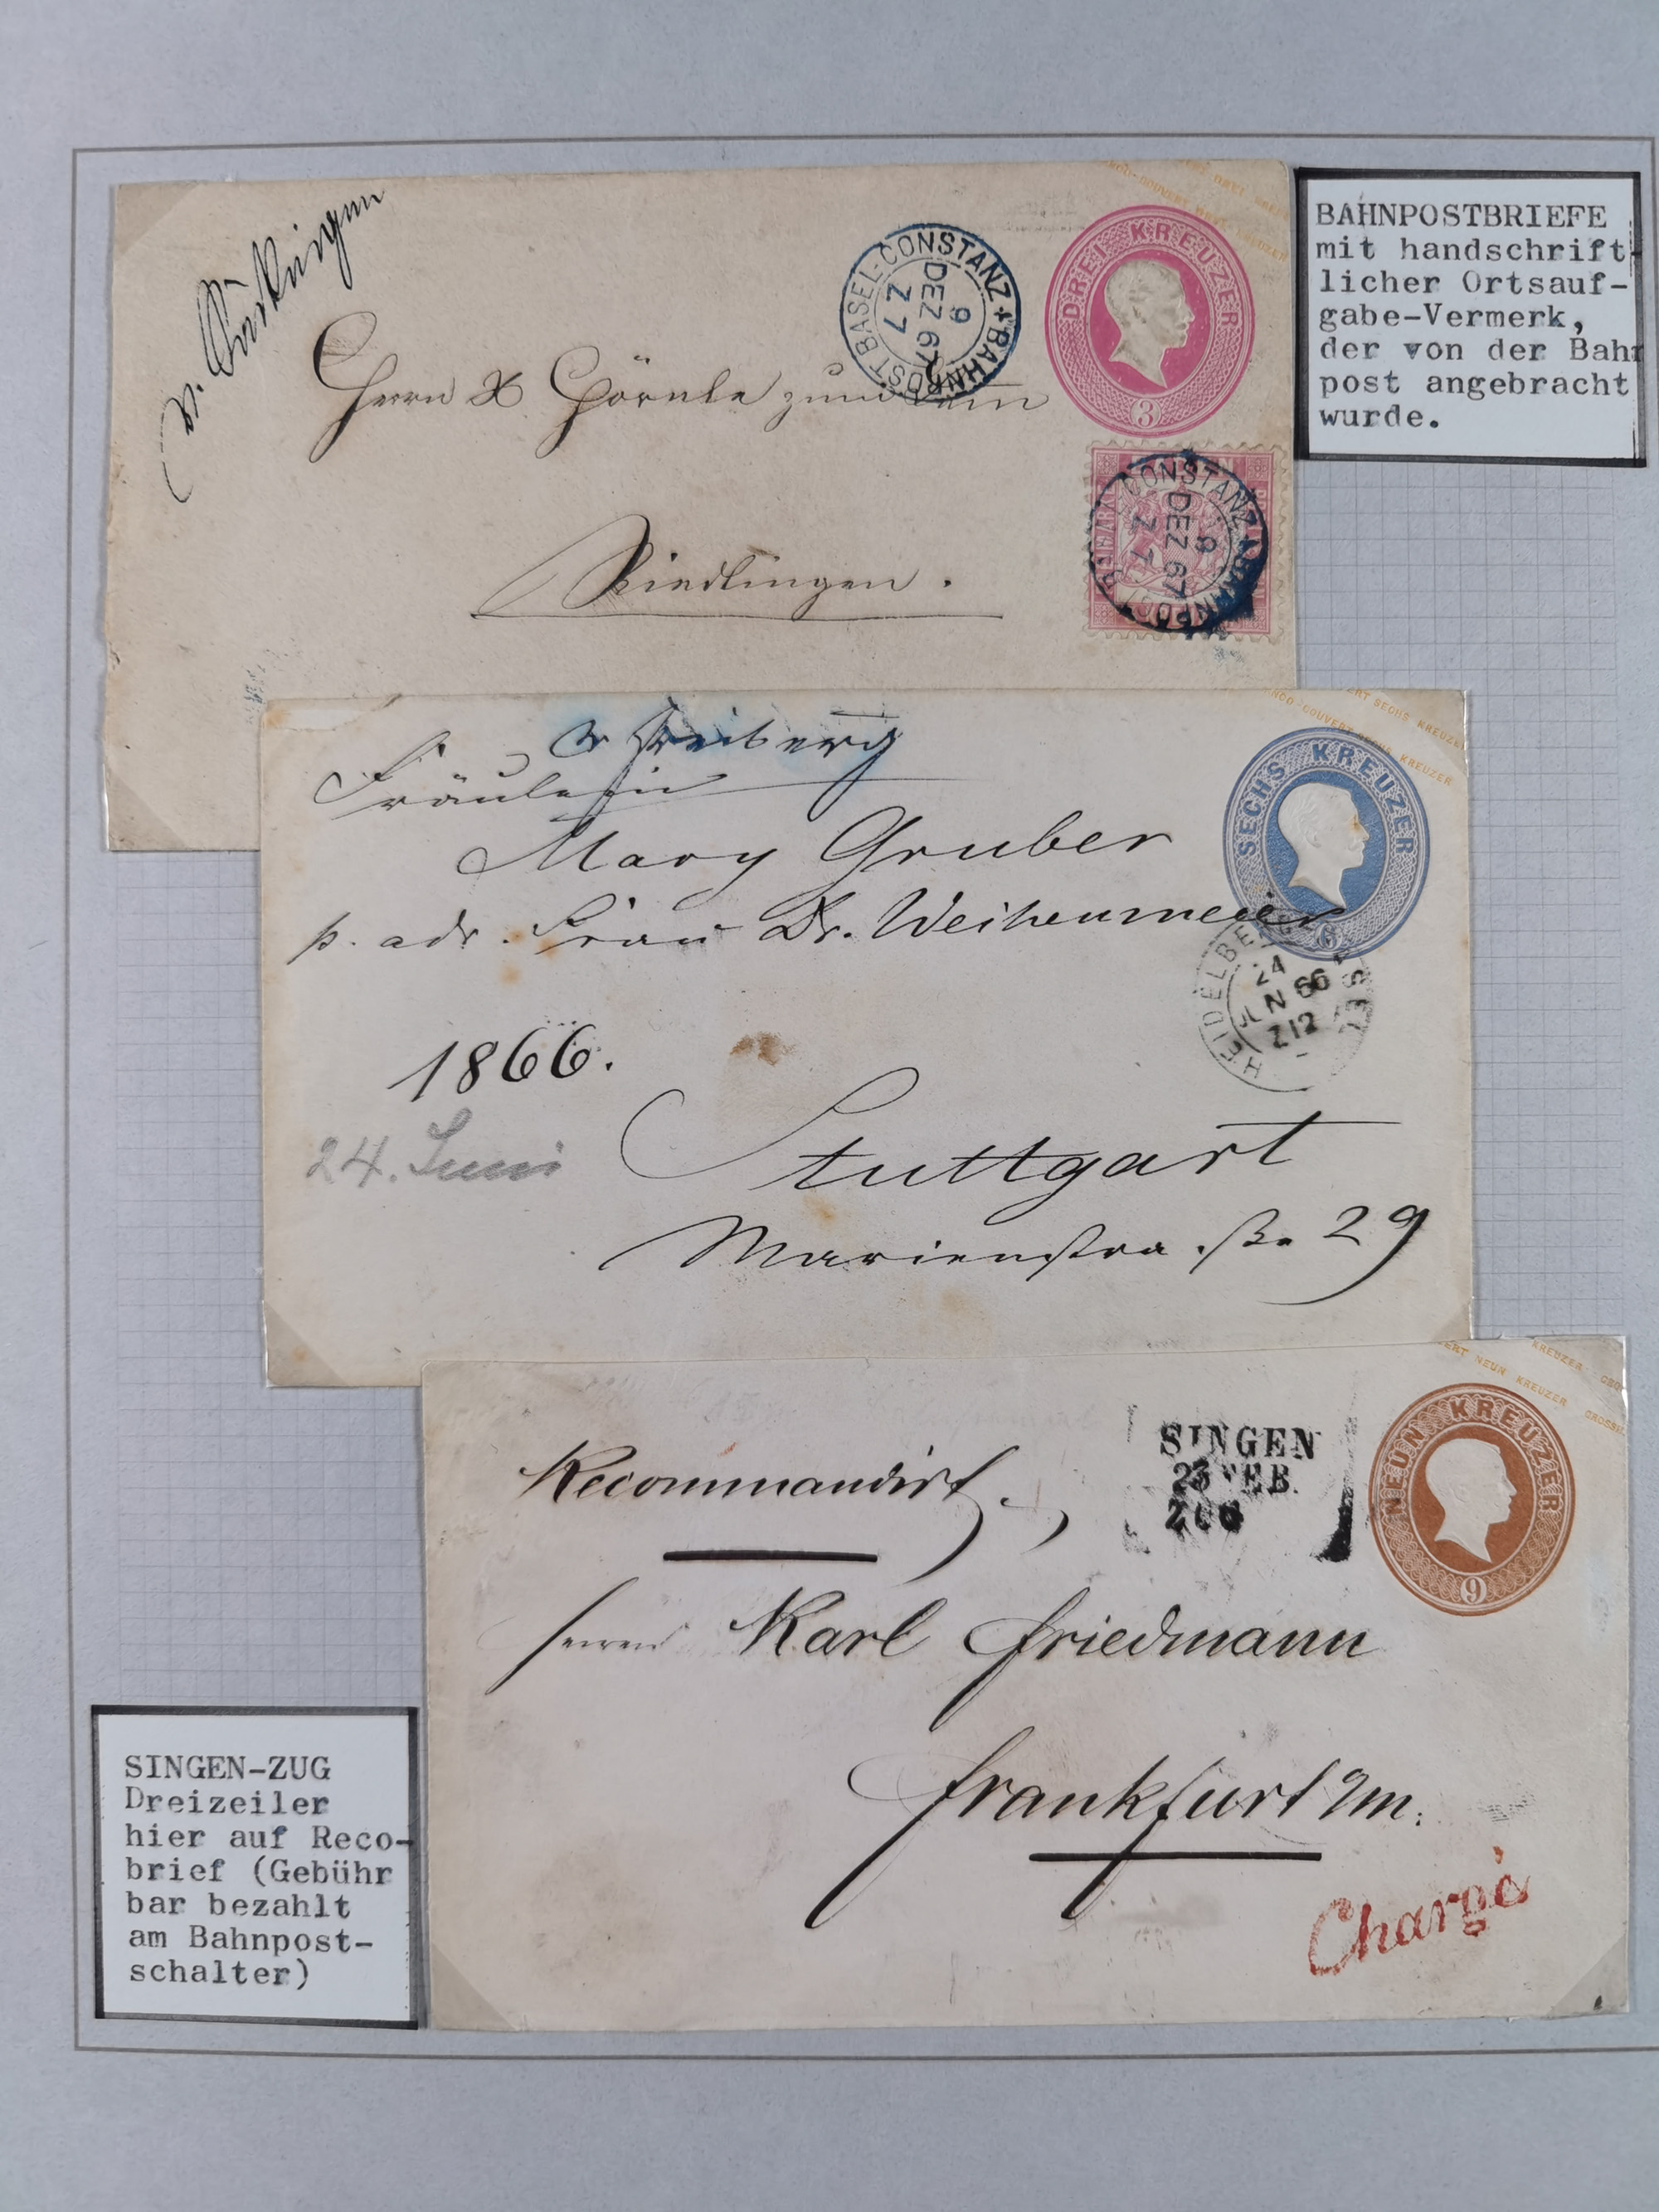 v. Säckingen
BASEL-CONSTANZ + BAHNPOST
9
DEZ 67
Z 7
DREI KREUZER
3
Herrn
CONSTANZ
9
DEZ 67
Z 7
Riedlingen.
BAHNPOSTBRIEFE
mit handschrift-
licher Ortsauf-
gabe-Vermerk,
der von der Bahn
post angebracht
wurde.
v Freiberg
Fräulein
Mary Gruber
p. adr. Frau Dr. Weihenmeier
1866.
24. Juni
Stuttgart
Marienstra.ße 29
COUVERT SECHS KREUZER
SECHS KREUZER
6
HEIDELBERG
24
JUN 66
Z 12
Recommandirt.
SINGEN
23 FEB.
NEUN KREUZER
NEUN KREUZER
9
Herrn Karl Friedmann
Frankfurt a/m.
Chargé
SINGEN-ZUG
Dreizeiler
hier auf Reco-
brief (Gebühr
bar bezahlt
am Bahnpost-
schalter)